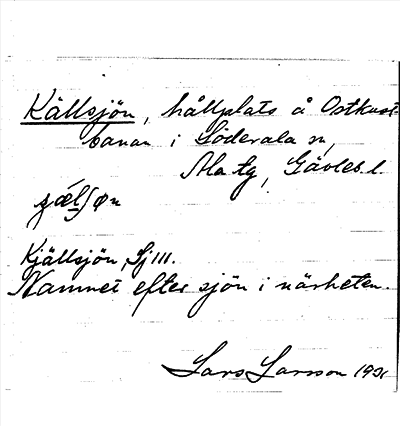 Källsjön, hållplats å Ostkust-
banan i Söderala sn,
Ala tg, Gävleb. l.
Kjällsjön, Sj III.
Namnet efter sjön i närheten.
Lars Larsson 1931